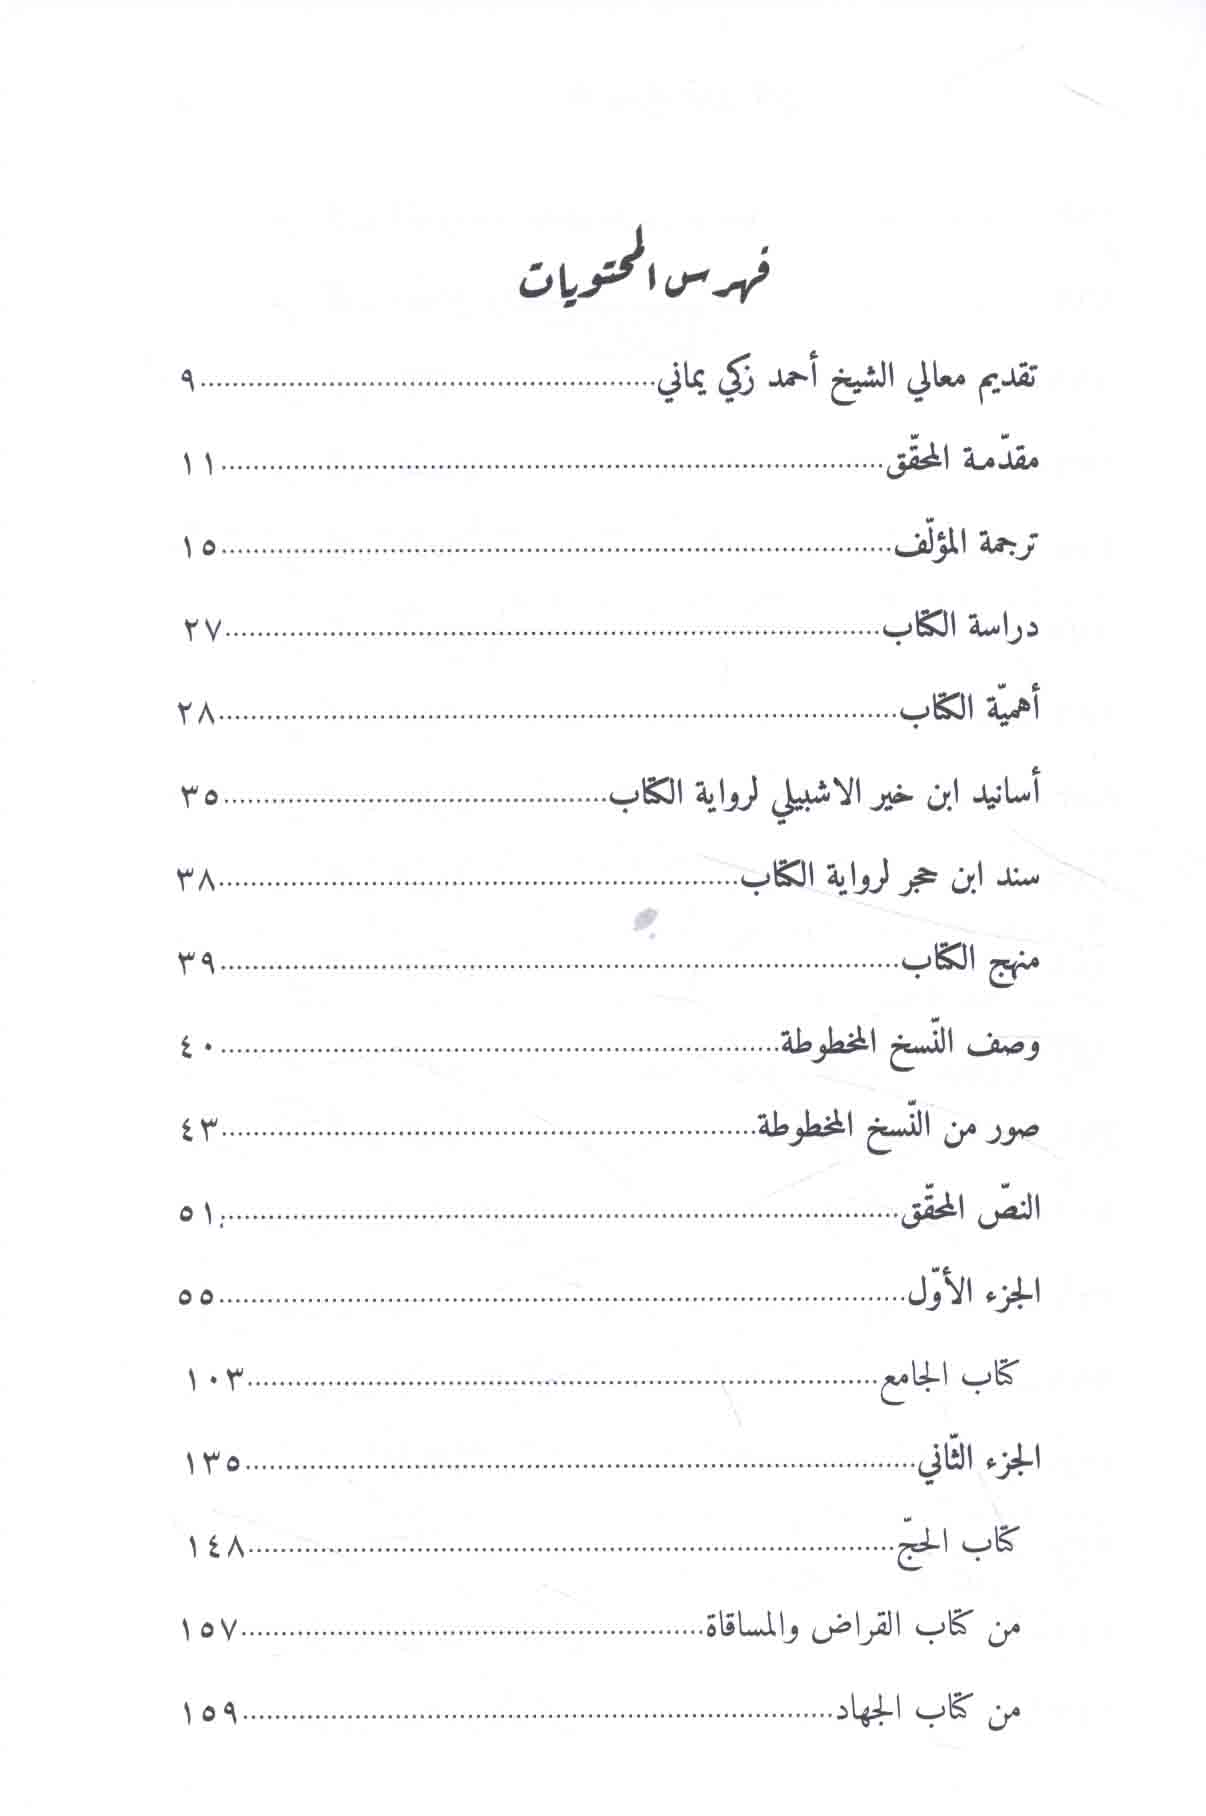 فهرس المحتويات
تقديم معالي الشيخ أحمد زكي يماني ................ ٩
مقدّمة المحقّق ................ ١١
ترجمة المؤلّف ................ ١٥
دراسة الكتاب ................ ٢٧
أهميّة الكتاب ................ ٢٨
أسانيد ابن خير الاشبيلي لرواية الكتاب ................ ٣٥
سند ابن حجر لرواية الكتاب ................ ٣٨
منهج الكتاب ................ ٣٩
وصف النّسخ المخطوطة ................ ٤٠
صور من النّسخ المخطوطة ................ ٤٣
النصّ المحقّق ................ ٥١
الجزء الأوّل ................ ٥٥
كتاب الجامع ................ ١٠٣
الجزء الثّاني ................ ١٣٥
كتاب الحجّ ................ ١٤٨
من كتاب القراض والمساقاة ................ ١٥٧
من كتاب الجهاد ................ ١٥٩